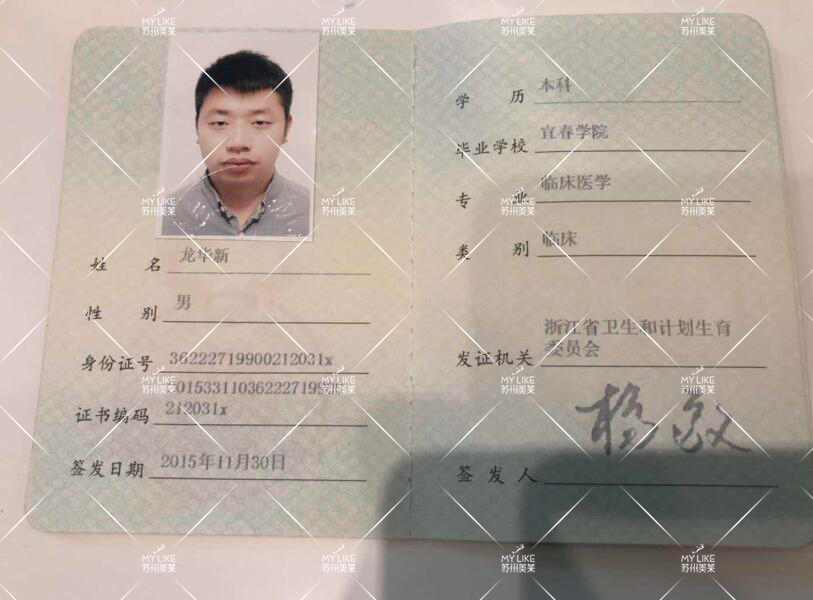 姓 名 龙华新
性 别 男
身份证号 36222719900212031x
证书编码
212031x
签发日期 2015年11月30日
学 历 本科
毕业学校 宜春学院
专 业 临床医学
类 别 临床
发证机关 浙江省卫生和计划生育
委员会
签 发 人
MY LIKE
苏州美莱